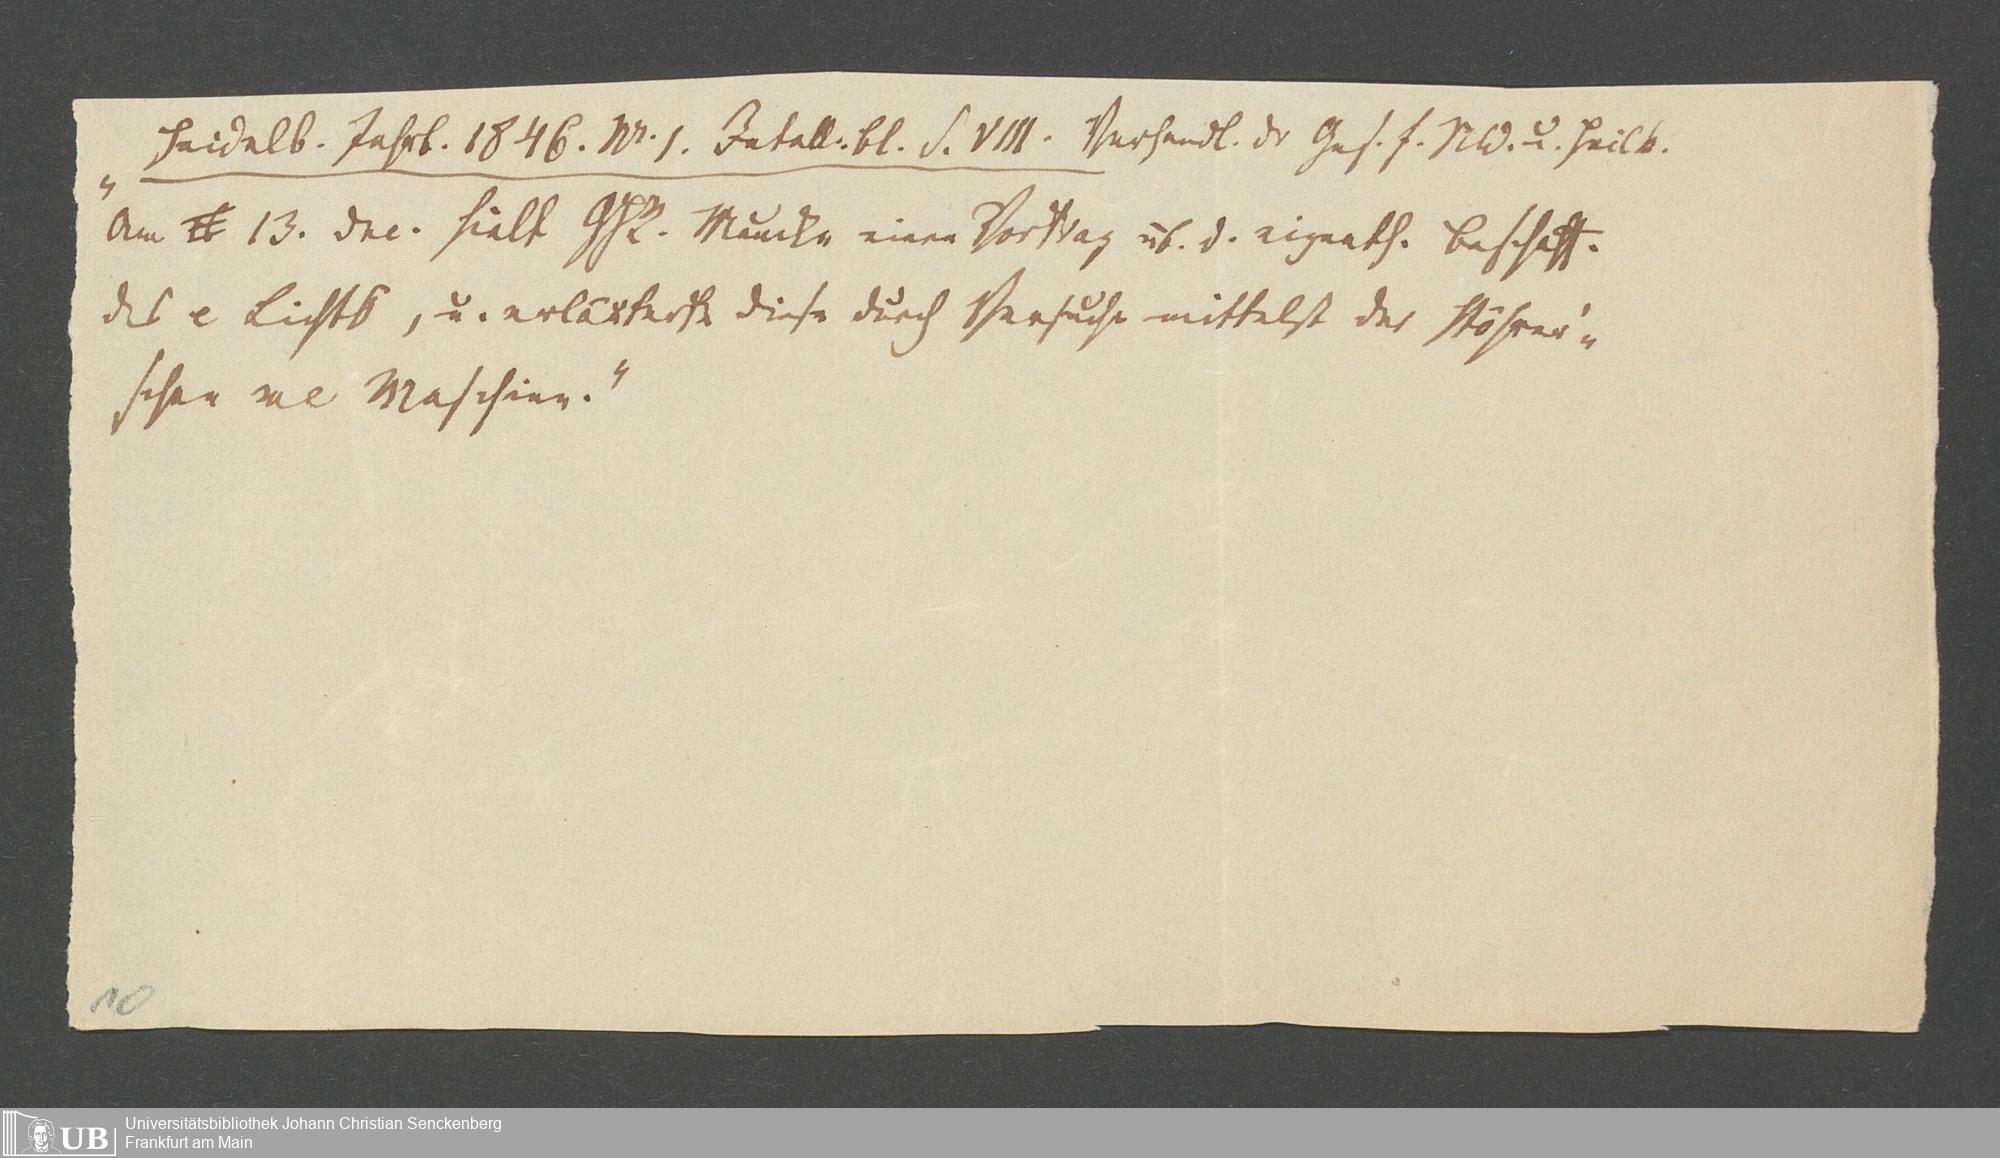 Heidelb. Jahrb. 1846. Nr. 1. Intell.bl. S. VIII. Verhandl. dr Ges. f. NW. u. Heilk.
„Am 13. Dec. hielt GHR. Muncke einen Vortrag üb. d. eigenth. Beschaff.
des e Lichts, u. erläuterte diese durch Versuche mittelst der Stöhrer'-
schen me Maschine."
10
UB Universitätsbibliothek Johann Christian Senckenberg
Frankfurt am Main